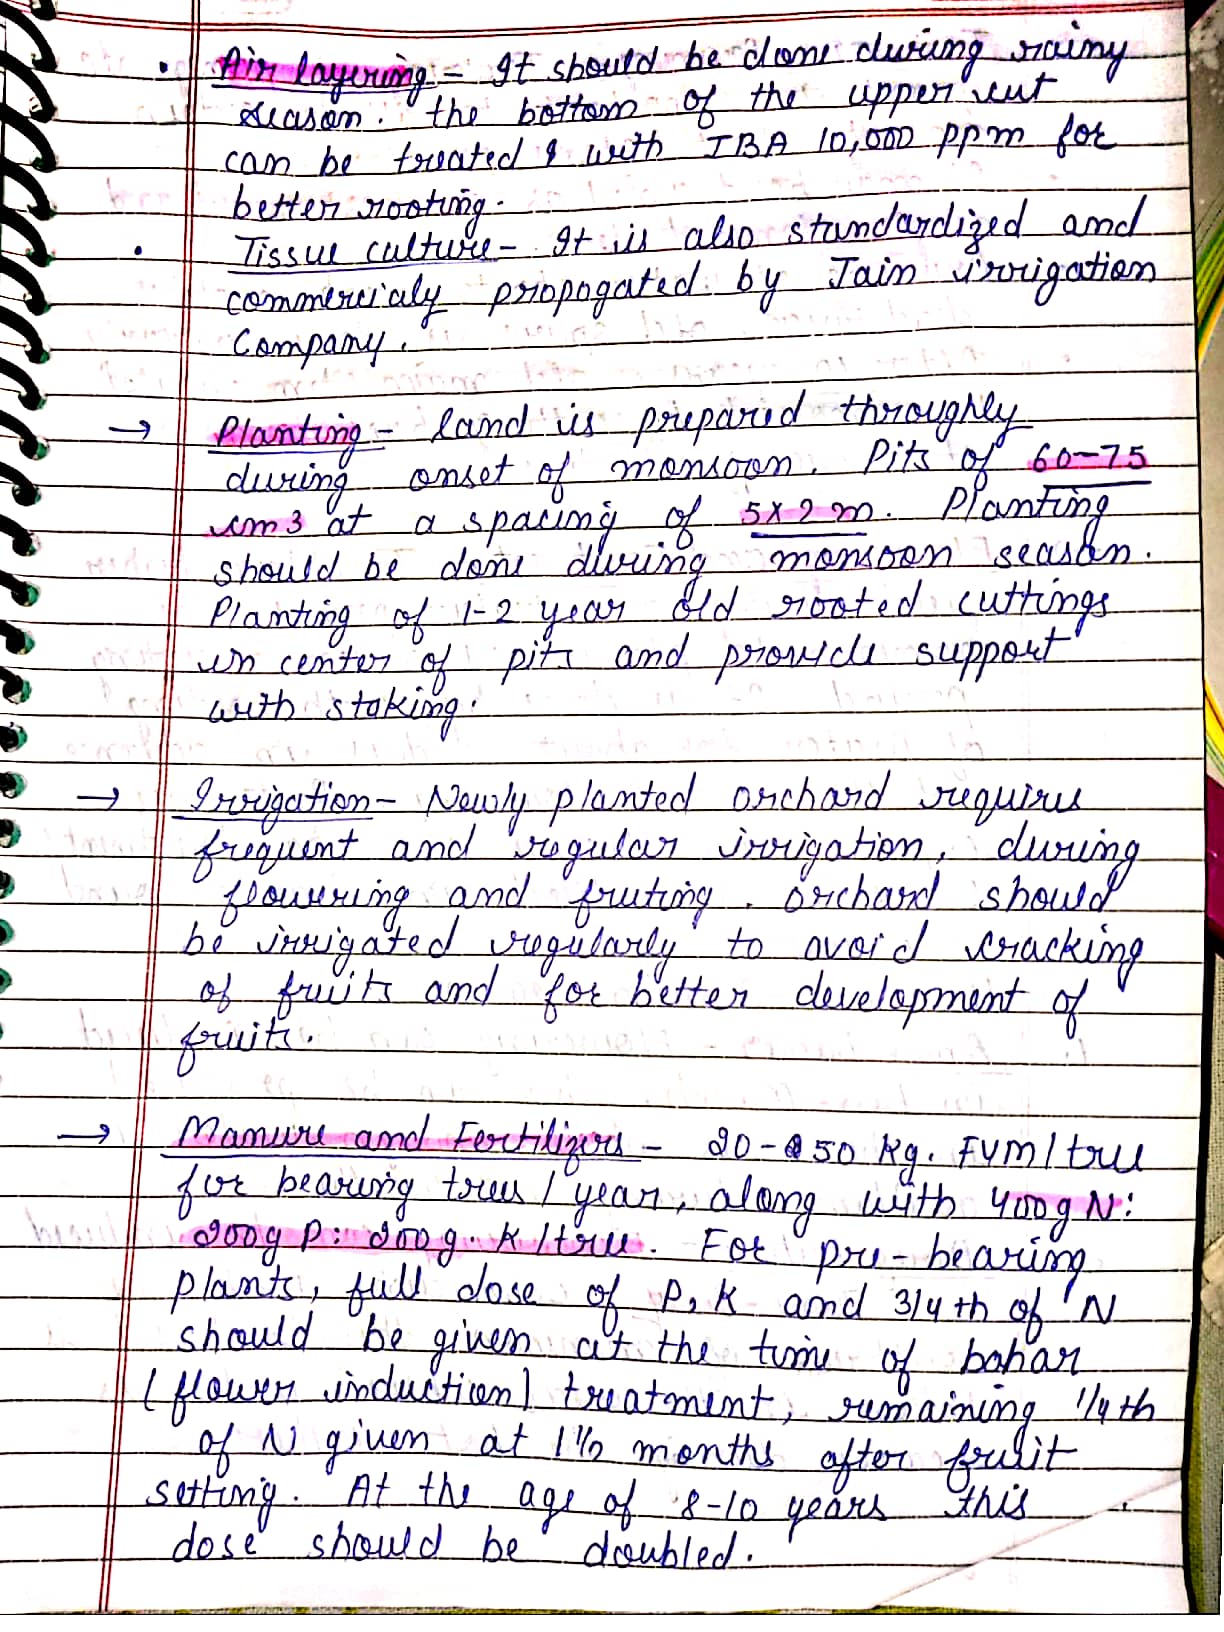 • Air layering - It should be done during rainy
season. the bottom of the upper cut
can be treated & with IBA 10,000 ppm for
better rooting.
• Tissue culture - It is also standardized and
commercialy propogated by Jain irrigation
Company.
→ Planting - land is prepared throughly
during onset of monsoon. Pits of 60-75
cm3 at a spacing of 5x2 m. Planting
should be done during monsoon season.
Planting of 1-2 year old rooted cuttings
in center of pits and provide support
with staking.
→ Irrigation - Newly planted orchard requires
frequent and regular irrigation, during
flowering and fruting. orchard should
be irrigated regularly to avoid cracking
of fruits and for better development of
fruits.
→ Manure and Fertilizers - 20-50 kg. FYM/tree
for bearing trees / year, along with 400g N:
200g P: 200g. K /tree. For pre-bearing
plants, full dose of P, K and 3/4th of N
should be given at the time of bahar
(flower induction) treatment, remaining 1/4th
of N given at 1½ months after fruit
setting. At the age of 8-10 years this
dose should be doubled.